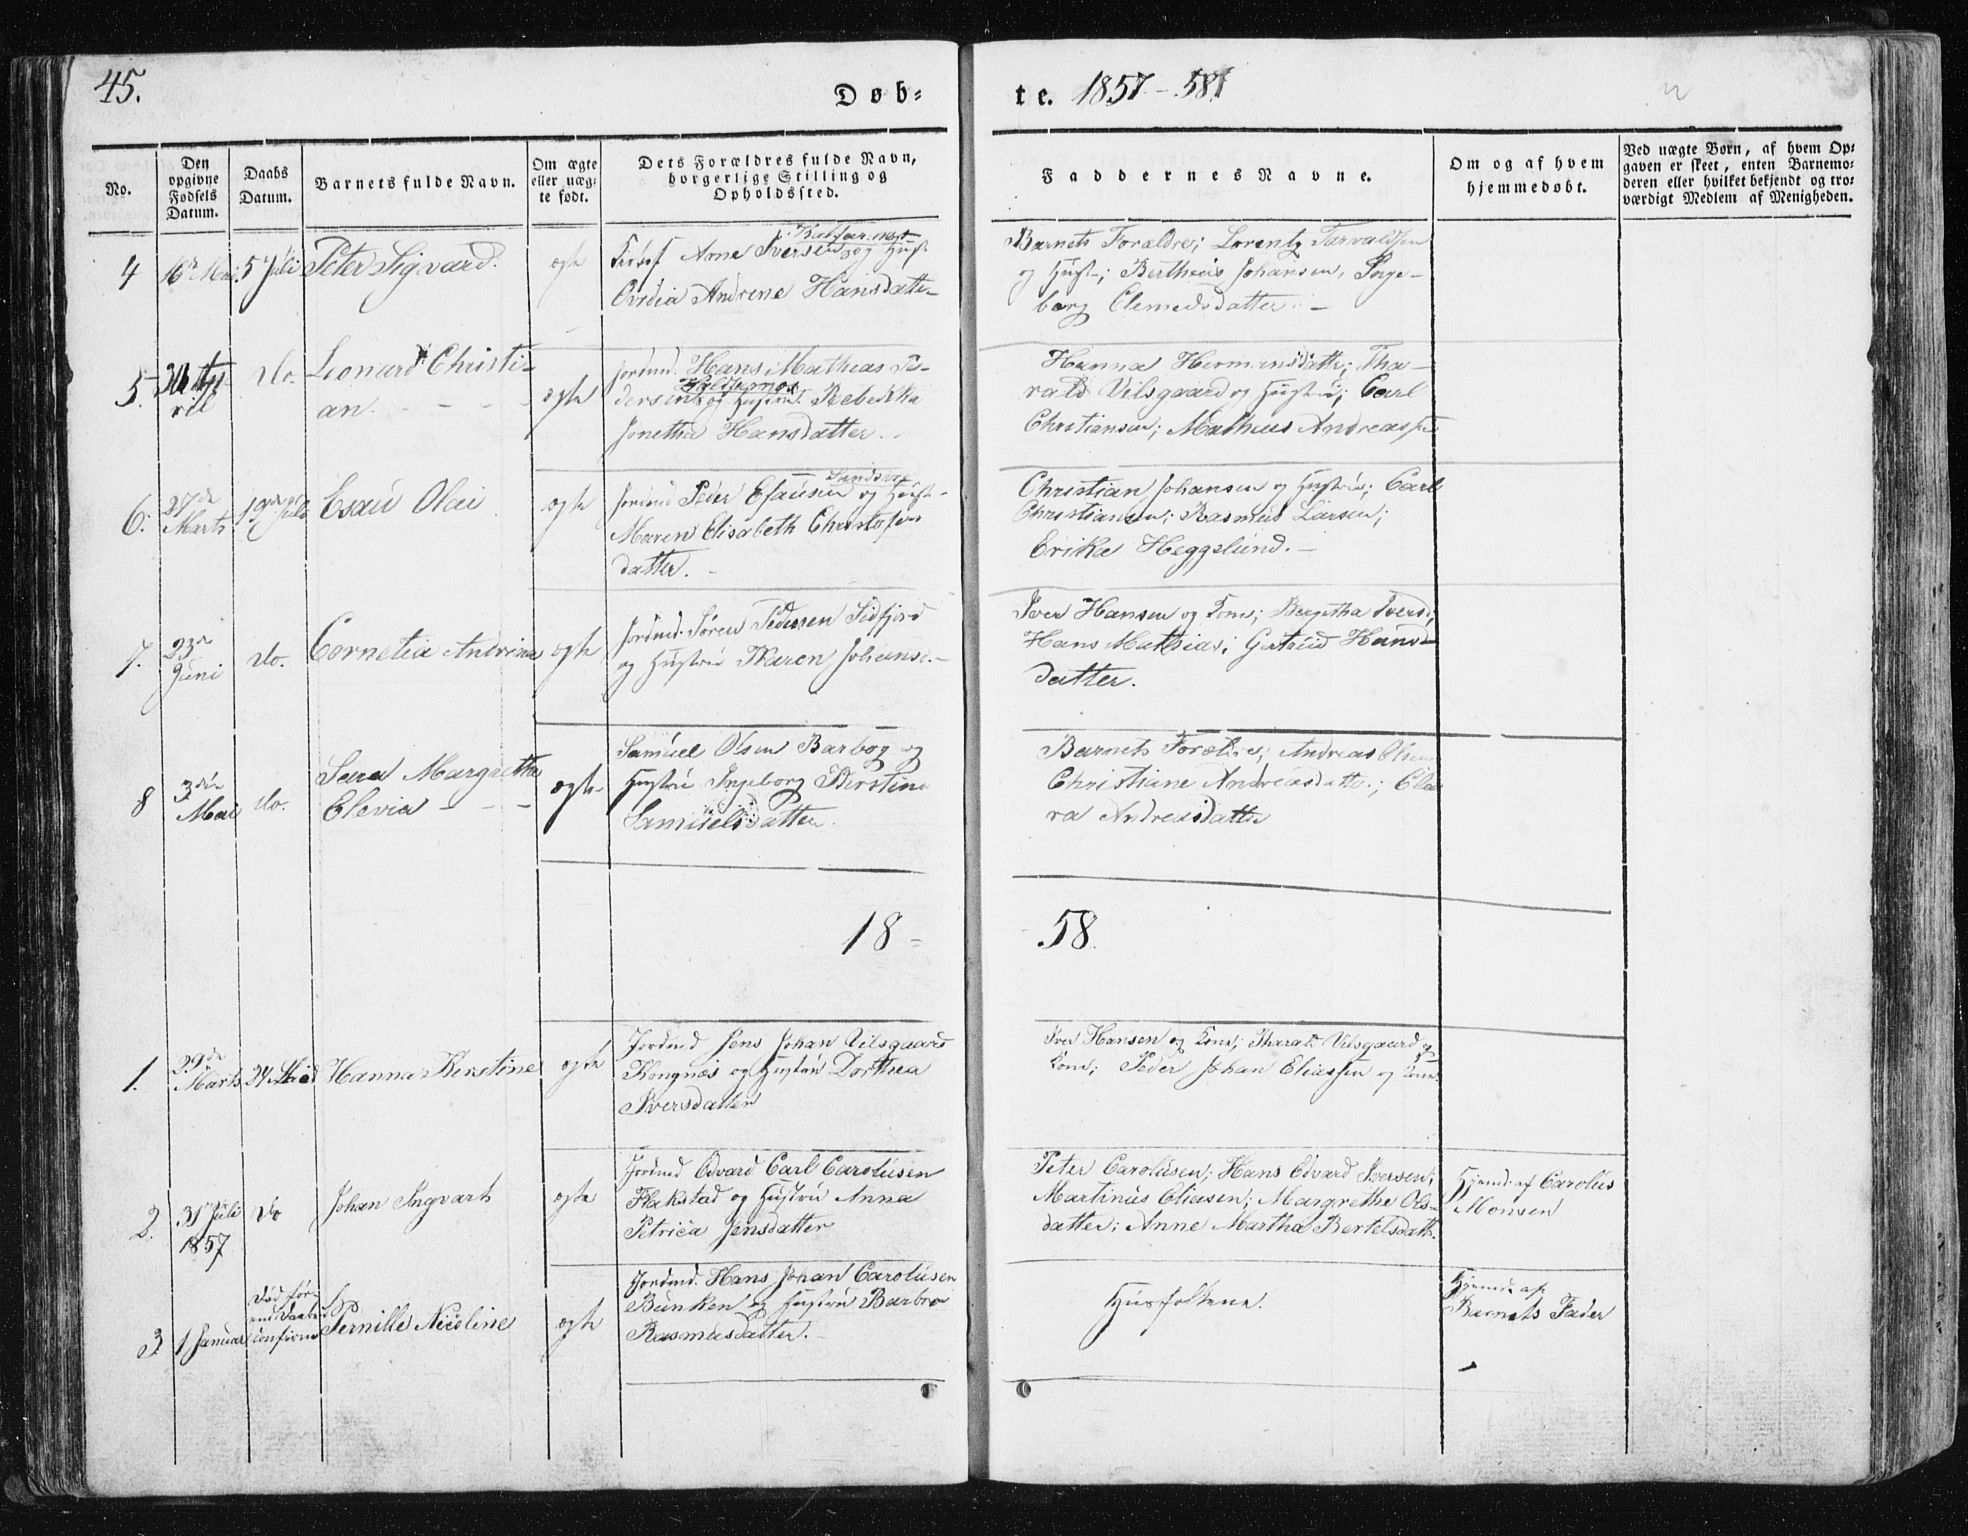 45.
Døb=
te. 1857-58
No.
Den opgivne Fødsels Datum.
Daabs Datum.
Barnets fulde Navn.
Om ægte eller uæg=te født.
Dets Forældres fulde Navn, borgerlige Stilling og Opholdssted.
Faddernes Navne.
Om og af hvem hjemmedøbt.
Ved uægte Børn, af hvem Op=gaven er skeet, enten Barnemo=deren eller hvilket bekjendt og tro=værdigt Medlem af Menigheden.
4
5 Juli
Peter Sigvard.
ægte
Arne Iversen og Hust
Ovidia Andrene Hansdatter
Barnets Forældre; Lorentz Tarvaldsen
og Hust-; Bertheus Johansen, Inge-
borg Clemedsdatter. -
5.
April
do.
Leonard Christi-
an. - - - -
ægte
Jordmd. Hans Mathias Pe-
dersen og Hustru Rebekka
Jonetha Hansdatter. -
Hanna Hermansdatter; Tha-
rald Vilsgaard og Hustru; Carl
Christiansen; Mathius Andreassen
6.
27de Marts.
19de Juli
Esau Olai
ægte
Jordmd Peder Esausen og Hust-
Maren Elisabeth Christofers
datter. -
Christian Johansen og Hustru; Carl
Christiansen; Rasmus Larsen;
Erika Heggelund. -
7.
23de Juni
do.
Cornelia Andrina
ægte
Jordmd. Søren Pedersen Sidfjord
og Hustru Karen Johansd. -
Iver Hansen og Kone; Bergitha Iversd;
Hans Mathias; Gertrud Hansd-
datter.
8
3die Mai
do.
Sara Margretha
Elevia - - -
ægte
Samuel Olsen Barbog og
Hustru Ingeborg Kirstina
Samuelsdatter.
Barnets Forældre; Andreas Olsen
Christiane Andreasdatter; Cla
ra Andreasdatter
18 - 58.
1.
29de Marts
24
Hanna Kirstine
ægte
Jordmd Jens Johan Vilsgaard
Kongnæs og Hustru Dorthea
Iversdatter
Iver Hansen og Kone; Tharald Vilsgaard og
Kone; Peder Johan Eliassen og Kone.
2.
31 Juli 1857
do
Johan Ingvart
ægte
Jordmd Edvard Carl Carolusen
Flakstad og Hustru Anna
Petrica Jensdatter
Peter Carolusen; Hans Edvard Iversen;
Martinus Eliasen; Margrethe Ols-
datter; Anne Martha Bertelsdatt.
Hjemd. af Carolus
Monsen
3.
1 Januar
Død før-
end Daabs
confirm
Pernille Nicoline
ægte
Jordmd. Hans Johan Carolusen
Bunken og Hustru Barbro
Rasmusdatter. -
Husfolkene.
Hjemd. af
Barnets Fader